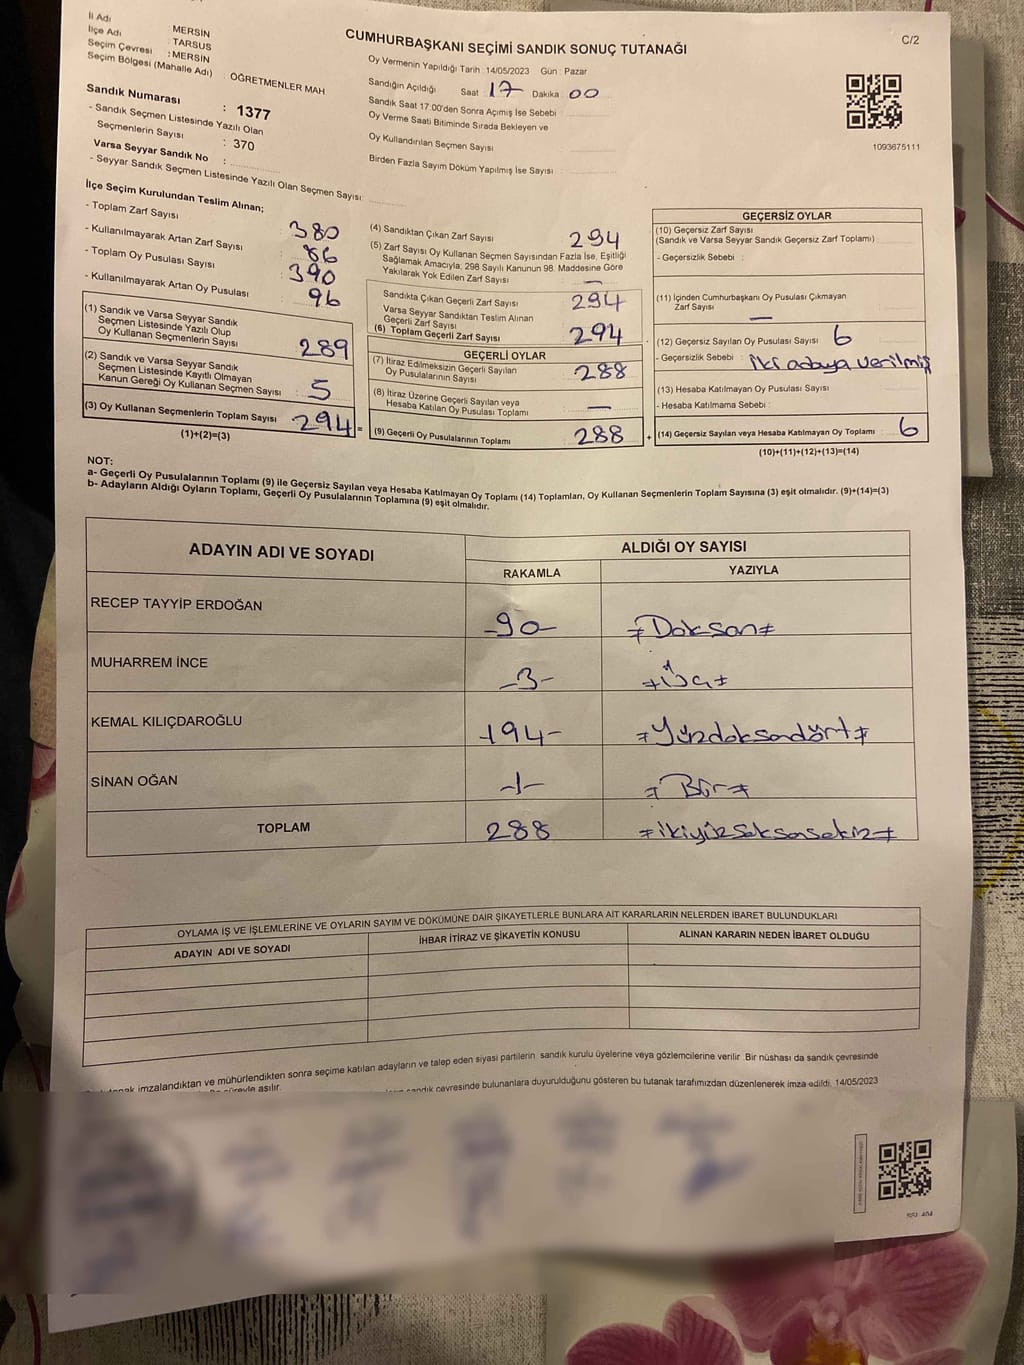 İl Adı : MERSİN
İlçe Adı : TARSUS
Seçim Çevresi : MERSİN
Seçim Bölgesi (Mahalle Adı) : ÖĞRETMENLER MAH
Sandık Numarası : 1377
- Sandık Seçmen Listesinde Yazılı Olan
Seçmenlerin Sayısı : 370
Varsa Seyyar Sandık No :
- Seyyar Sandık Seçmen Listesinde Yazılı Olan Seçmen Sayısı :
CUMHURBAŞKANI SEÇİMİ SANDIK SONUÇ TUTANAĞI
C/2
Oy Vermenin Yapıldığı Tarih : 14/05/2023 Gün : Pazar
Sandığın Açıldığı Saat 17 Dakika : 00
Sandık Saat 17:00'den Sonra Açımış İse Sebebi :
Oy Verme Saati Bitiminde Sırada Bekleyen ve
Oy Kullandırılan Seçmen Sayısı
Birden Fazla Sayım Döküm Yapılmış İse Sayısı :
1093675111
İlçe Seçim Kurulundan Teslim Alınan;
- Toplam Zarf Sayısı : 380
- Kullanılmayarak Artan Zarf Sayısı : 86
- Toplam Oy Pusulası Sayısı : 390
- Kullanılmayarak Artan Oy Pusulası : 96
(1) Sandık ve Varsa Seyyar Sandık
Seçmen Listesinde Yazılı Olup
Oy Kullanan Seçmenlerin Sayısı : 289
(2) Sandık ve Varsa Seyyar Sandık
Seçmen Listesinde Kayıtlı Olmayan
Kanun Gereği Oy Kullanan Seçmen Sayısı : 5
(3) Oy Kullanan Seçmenlerin Toplam Sayısı 294 =
(1)+(2)=(3)
(4) Sandıktan Çıkan Zarf Sayısı : 294
(5) Zarf Sayısı Oy Kullanan Seçmen Sayısından Fazla İse, Eşitliği
Sağlamak Amacıyla, 298 Sayılı Kanunun 98. Maddesine Göre
Yakılarak Yok Edilen Zarf Sayısı : —
Sandıkta Çıkan Geçerli Zarf Sayısı : 294
Varsa Seyyar Sandıktan Teslim Alınan
Geçerli Zarf Sayısı
(6) Toplam Geçerli Zarf Sayısı : 294
GEÇERLİ OYLAR
(7) İtiraz Edilmeksizin Geçerli Sayılan
Oy Pusulalarının Sayısı : 288
(8) İtiraz Üzerine Geçerli Sayılan veya
Hesaba Katılan Oy Pusulası Toplamı : —
(9) Geçerli Oy Pusulalarının Toplamı : 288 +
GEÇERSİZ OYLAR
(10) Geçersiz Zarf Sayısı
(Sandık ve Varsa Seyyar Sandık Geçersiz Zarf Toplamı) :
- Geçersizlik Sebebi :
(11) İçinden Cumhurbaşkanı Oy Pusulası Çıkmayan
Zarf Sayısı : —
(12) Geçersiz Sayılan Oy Pusulası Sayısı : 6
- Geçersizlik Sebebi : İki adaya verilmiş
(13) Hesaba Katılmayan Oy Pusulası Sayısı :
- Hesaba Katılmama Sebebi :
(14) Geçersiz Sayılan veya Hesaba Katılmayan Oy Toplamı : 6
(10)+(11)+(12)+(13)=(14)
NOT:
a- Geçerli Oy Pusulalarının Toplamı (9) ile Geçersiz Sayılan veya Hesaba Katılmayan Oy Toplamı (14) Toplamları, Oy Kullanan Seçmenlerin Toplam Sayısına (3) eşit olmalıdır. (9)+(14)=(3)
b- Adayların Aldığı Oyların Toplamı, Geçerli Oy Pusulalarının Toplamına (9) eşit olmalıdır.
ADAYIN ADI VE SOYADI ALDIĞI OY SAYISI
RAKAMLA YAZIYLA
RECEP TAYYİP ERDOĞAN -90- ≠Doksan≠
MUHARREM İNCE -3- ≠Üç≠
KEMAL KILIÇDAROĞLU -194- ≠Yüzdoksandört≠
SİNAN OĞAN -1- ≠Bir≠
TOPLAM 288 ≠ikiyüzseksensekiz≠
OYLAMA İŞ VE İŞLEMLERİNE VE OYLARIN SAYIM VE DÖKÜMÜNE DAİR ŞİKAYETLERLE BUNLARA AİT KARARLARIN NELERDEN İBARET BULUNDUKLARI
ADAYIN ADI VE SOYADI İHBAR İTİRAZ VE ŞİKAYETİN KONUSU ALINAN KARARIN NEDEN İBARET OLDUĞU
imzalandıktan ve mühürlendikten sonra seçime katılan adayların ve talep eden siyasi partilerin sandık kurulu üyelerine veya gözlemcilerine verilir Bir nüshası da sandık çevresinde
asılır. sandık çevresinde bulunanlara duyurulduğunu gösteren bu tutanak tarafımızdan düzenlenerek imza edildi. 14/05/2023